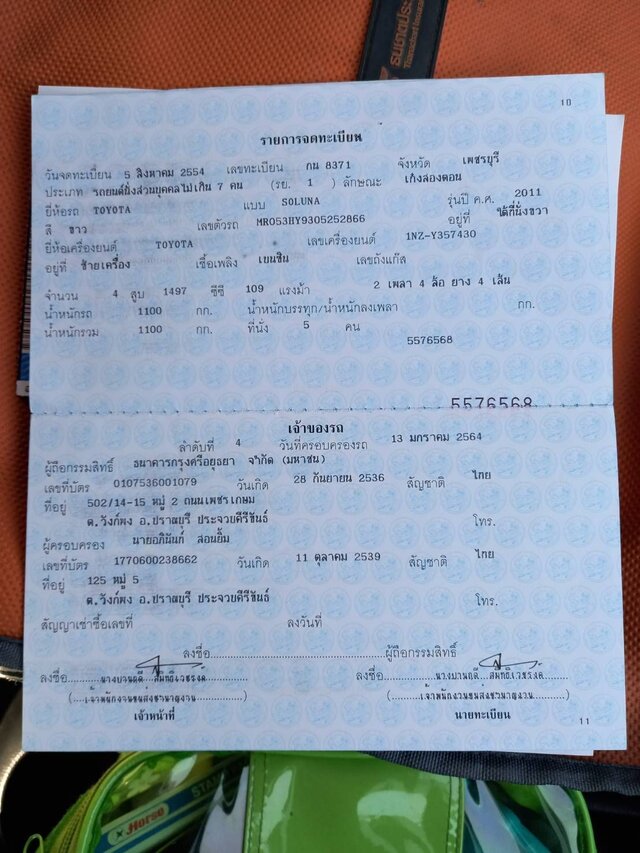 ธนชาตประ
Thanachart Insura
10
รายการจดทะเบียน
วันจดทะเบียน 5 สิงหาคม 2554 เลขทะเบียน กน 8371 จังหวัด เพชรบุรี
ประเภท รถยนต์นั่งส่วนบุคคลไม่เกิน 7 คน (รย. 1 ) ลักษณะ เก๋งสองตอน
ยี่ห้อรถ TOYOTA แบบ SOLUNA รุ่นปี ค.ศ. 2011
สี ขาว เลขตัวรถ MR053HY9305252866 อยู่ที่ ใต้ที่นั่งขวา
ยี่ห้อเครื่องยนต์ TOYOTA เลขเครื่องยนต์ 1NZ-Y357430
อยู่ที่ ซ้ายเครื่อง เชื้อเพลิง เบนซิน เลขถังแก๊ส
จำนวน 4 สูบ 1497 ซีซี 109 แรงม้า 2 เพลา 4 ล้อ ยาง 4 เส้น
น้ำหนักรถ 1100 กก. น้ำหนักบรรทุก/น้ำหนักลงเพลา กก.
น้ำหนักรวม 1100 กก. ที่นั่ง 5 คน
5576568
5576568
เจ้าของรถ
ลำดับที่ 4 วันที่ครอบครองรถ 13 มกราคม 2564
ผู้ถือกรรมสิทธิ์ ธนาคารกรุงศรีอยุธยา จำกัด (มหาชน)
เลขที่บัตร 0107536001079 วันเกิด 28 กันยายน 2536 สัญชาติ ไทย
ที่อยู่ 502/14-15 หมู่ 2 ถนนเพชรเกษม
ต.วังก์พง อ.ปราณบุรี ประจวบคีรีขันธ์ โทร.
ผู้ครอบครอง นายอภินันท์ สอนยิ้ม
เลขที่บัตร 1770600238662 วันเกิด 11 ตุลาคม 2539 สัญชาติ ไทย
ที่อยู่ 125 หมู่ 5
ต.วังก์พง อ.ปราณบุรี ประจวบคีรีขันธ์ โทร.
สัญญาเช่าซื้อเลขที่ ลงวันที่
ลงชื่อ ผู้ถือกรรมสิทธิ์
ลงชื่อ ลงชื่อ
(เจ้าพนักงานขนส่งชำนาญงาน) (เจ้าพนักงานขนส่งชำนาญงาน)
เจ้าหน้าที่ นายทะเบียน
11
Horse
STAN